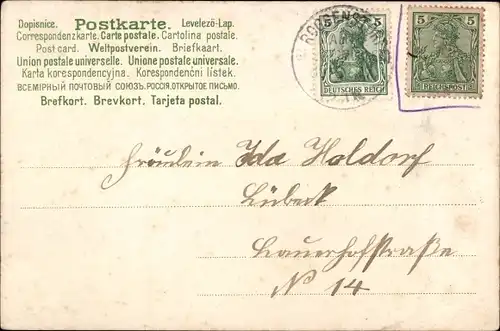 Dopisnice. Postkarte. Levelező-Lap.
Correspondenzkarte. Carte postale. Cartolina postale.
Post card. Weltpostverein. Briefkaart.
Union postale universelle. Unione postale universale.
Karta korespondencyjna. Korespondenční lístek.
ВСЕМІРНЫЙ ПОЧТОВЫЙ СОЮЗЪ. РОССІЯ. ОТКРЫТОЕ ПИСЬМО.
Brefkort. Brevkort. Tarjeta postal.
5 5
DEUTSCHES REICH
5 5
REICHSPOST
Fräulein Ida Haldorf
Lübeck
Lauerhofstraße
No 14